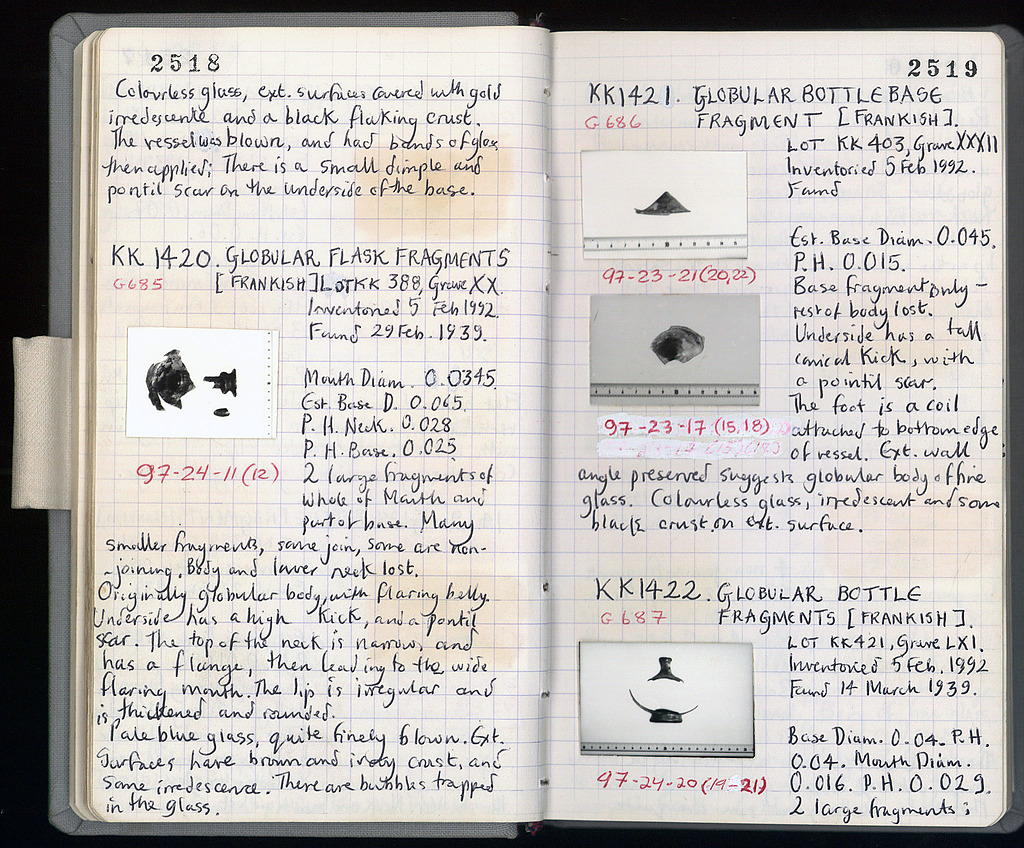 2518
Colourless glass, ext. surfaces covered with gold
irredescente and a black flaking crust.
The vessel was blown, and had bands of glass
then applied; There is a small dimple and
pontil scar on the underside of the base.
KK 1420. GLOBULAR FLASK FRAGMENTS
G685 [FRANKISH] LOT KK 388, Grave XX.
Inventoried 5 Feb 1992.
Found 29 Feb. 1939.
Mouth Diam. 0.0345.
Est. Base D. 0.065.
P. H. Neck. 0.028
P. H. Base. 0.025
97-24-11(12)
2 large fragments of
whole of Mouth and
part of base. Many
smaller fragments, some join, some are non-
-joining. Body and lower neck lost.
Originally globular body, with flaring belly.
Underside has a high Kick, and a pontil
scar. The top of the neck is narrow, and
has a flange, then leading to the wide
flaring mouth. The lip is irregular and
is thickened and rounded.
Pale blue glass, quite finely blown. Ext.
Surfaces have brown and crust, and
some irredescence. There are bubbles trapped
in the glass.
2519
KK1421. GLOBULAR BOTTLE BASE
G686 FRAGMENT [FRANKISH].
LOT KK 403, Grave XXXII
Inventoried 5 Feb 1992.
Found
Est. Base Diam. 0.045.
P.H. 0.015.
97-23-21(20,22)
Base fragment only –
rest of body lost.
Underside has a tall
conical Kick, with
a pointil scar.
The foot is a coil
97-23-17 (15,18)
attached to bottom edge
of vessel. Ext. wall
angle preserved suggests globular body of fine
glass. Colourless glass, irredescent and some
black crust on ext. surface.
KK1422. GLOBULAR BOTTLE
G687 FRAGMENTS [FRANKISH].
LOT KK421, Grave LXI.
Inventoried 5 Feb. 1992
Found 14 March 1939.
Base Diam. 0.04. P.H.
0.04. Mouth Diam.
97-24-20(19-21)
0.016. P.H. 0.029.
2 large fragments;